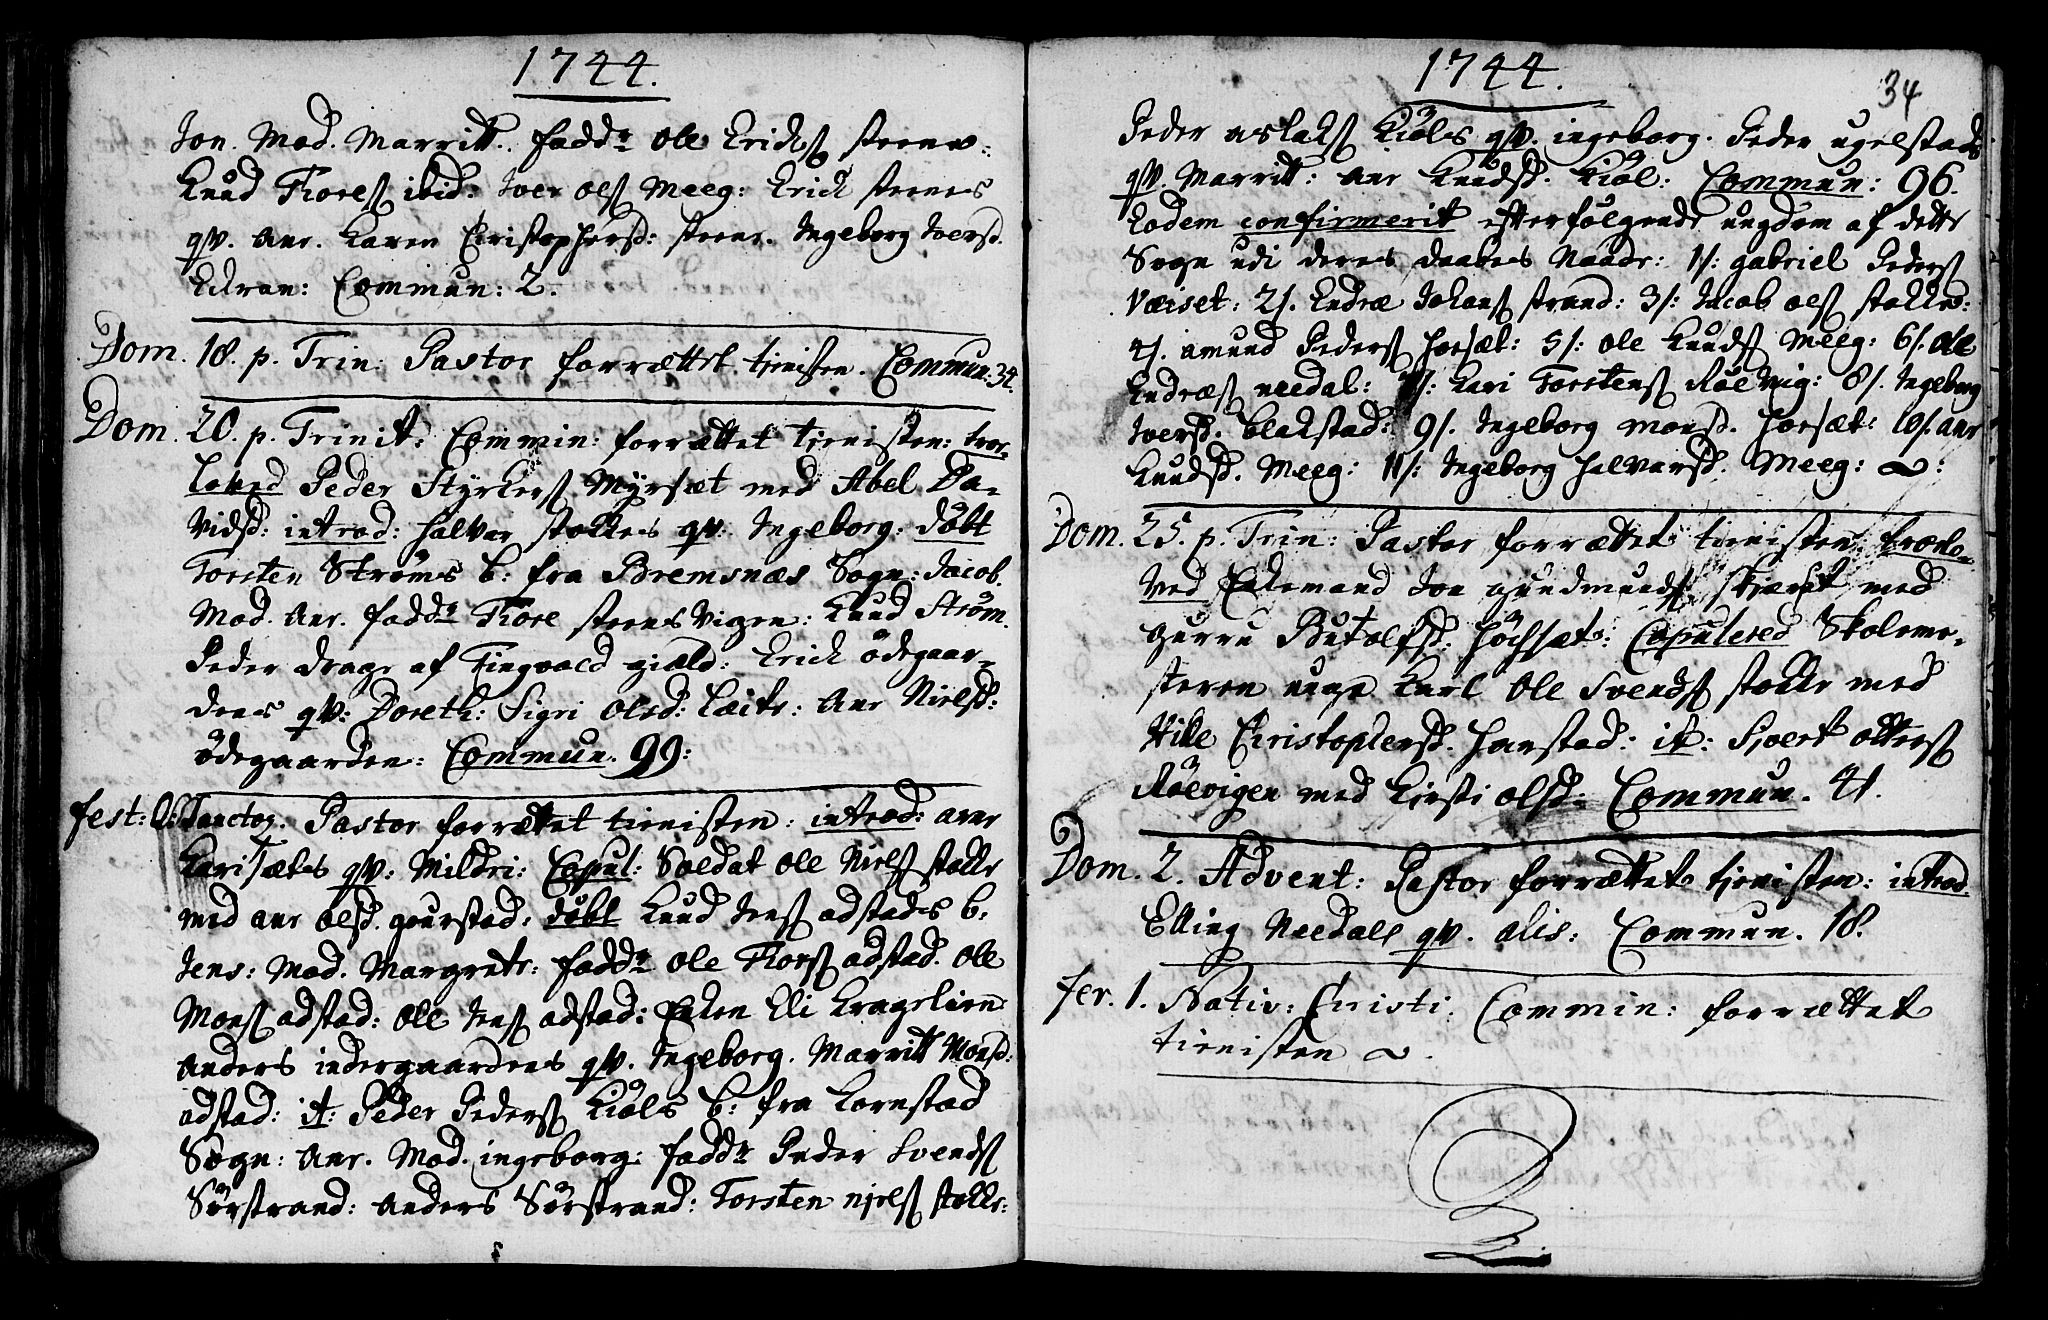 1744.
Jon. Mod. Marritt. fadd: Ole Erichs steene:
Knud Thores ibid: Iver ols Meeg: Erich steenes
qv. Ane. Karen Christophersd: steene. Ingeborg Iversd.
Edvan: Commun: 2.
Dom. 18. p. Trin: Pastor forrættet tienisten. Commun: 34.
Dom. 20. p. Trinit: Commin: forrættet tienisten: troe-
loved Peder Styrkers Myrsæt med Abel Da-
vidsd: introd: Halvar stokkes qv: Ingeborg: døbt
Torsten Strøms b: fra Bremsnæs Sogn: Jacob.
Mod. Ane. fadd: Thore steensvigen: Knud Strøm.
Peder drage af Tingvold gield: Erich ødegaar-
dens qv: Doreth: Sigri olsd: Leite: Ane Nielsd:
ødegaarden: Commun. 99:
fest: O: Sanctor. Pastor forrættet tienisten: introd: arne
Karisæts qv: Mildri: Copul: Soldat ole Niels stokke
med ane olsd. gourstad: døbt Knud Jens adstads b:
Jens: Mod. Margrete: fadd: ole Thors adstad. ole
Mons adstad: ole Jens adstad: Enken Eli Krageliene
anders indergaardens qv. Ingeborg. Marritt Monsd:
adstad: it: Peder Peders Kiøls b: fra Kornstad
Sogn: Ane. Mod. ingeborg: fadd: Peder Svends
Sørstrand: anders Sørstrand: Torsten niels stokke:
1744.
34
Peder aslaks Kiøls qv. ingeborg. Peder ugelstads
qv. Marritt: ane Knudsd. Kiøl: Commun: 96.
Eodem confirmerit efterfølgende ungdom af dette
Sogn udi deres daabes Naade: 1/: gabriel Peders
Værset: 2/. Endræ Johans strand: 3/: Jacob ols stokke:
4/. amund Peders horsæt: 5/: ole Knuds Meeg: 6/. ole
Endræs needal: 7/: Kari Torstens Røe vig: 8/. Ingeborg
Iversd. blakstad: 9/. Ingeborg monsd. horsæt: 10/. ane
Knudsd. Meeg: 11/: Ingeborg halvarsd. Meeg:
Dom. 25. p. Trin: Pastor forrættet tienisten: troelo-
ved Enkemand Jon gundmunds skjærset med
gurru Butolfsd. høchsæt: Copulered Skoleme-
steren unge Karl Ole Svends stokke med
Hilde Christophersd. hanstad: it: Sivert otters
Røevigen med Kirsti olsd: Commun. 41.
Dom. 2. Advent: Pastor forrættet tienisten: introd.
Elling Needals qv. alis: Commun. 18.
fer. 1. Nativ: Christi: Commin: forrættet
tienisten